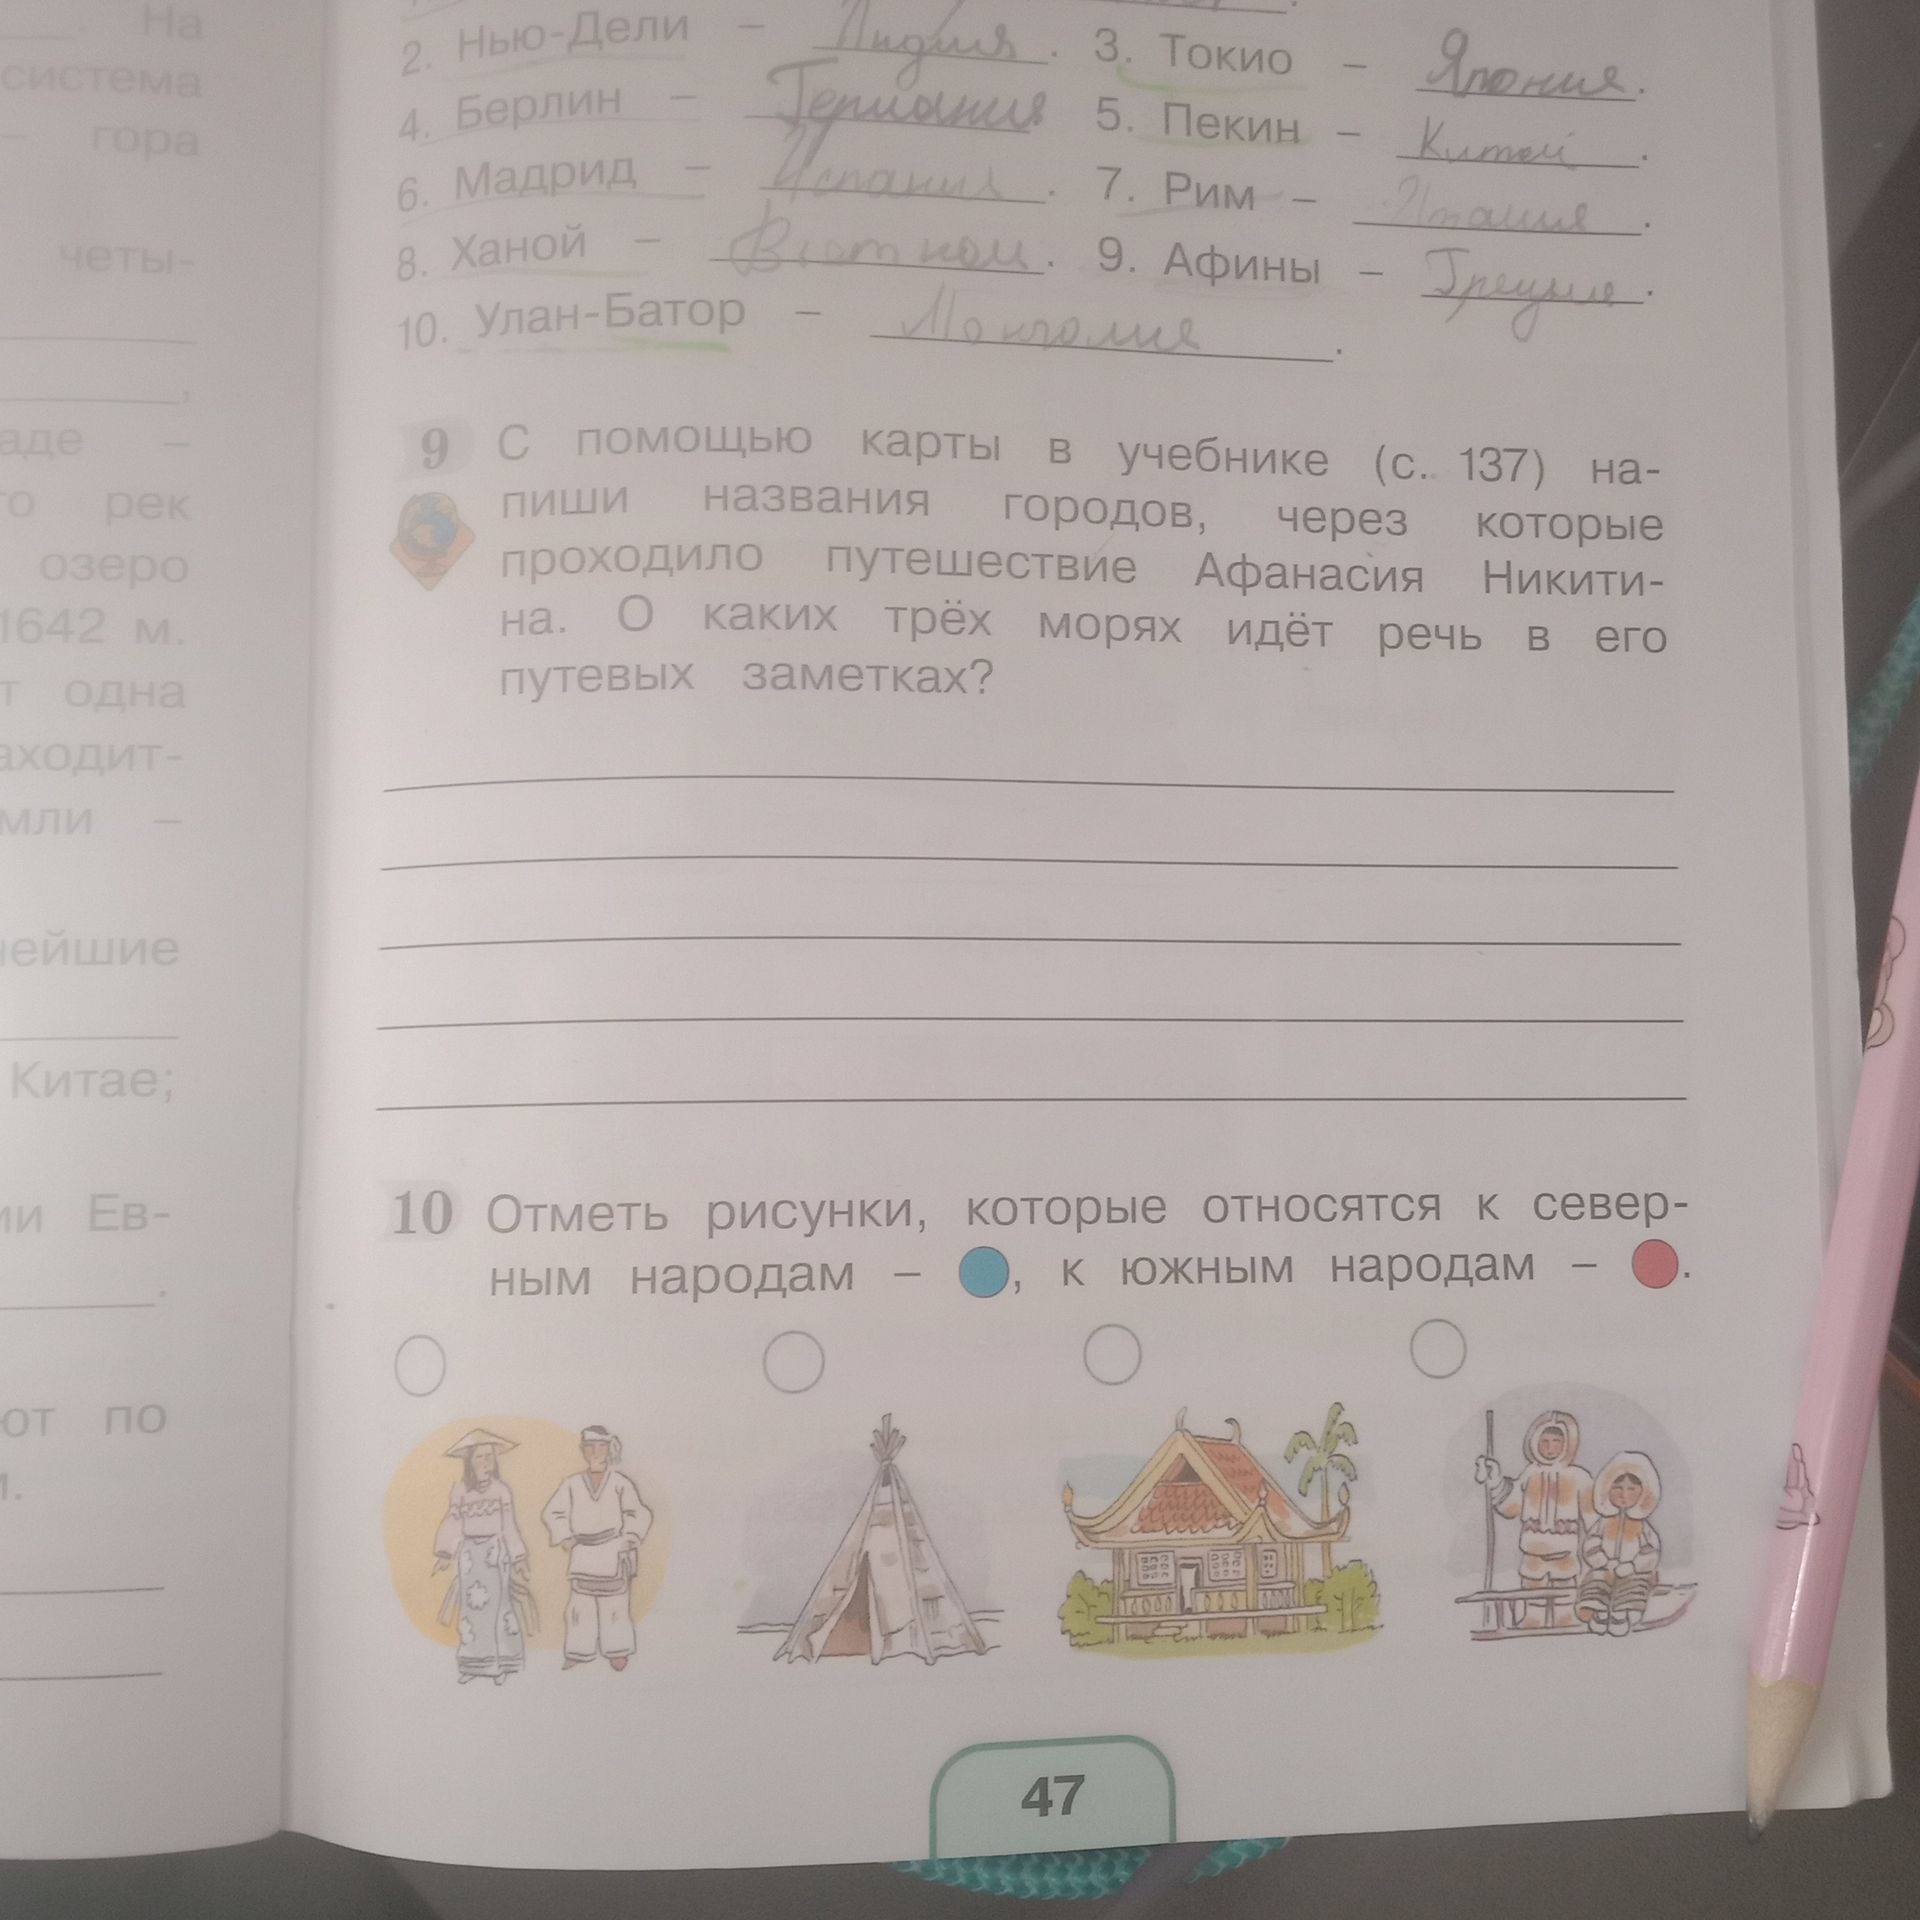 На
система
2. Нью-Дели – Индия. 3. Токио – Япония.
– гора
4. Берлин – Германия 5. Пекин – Китай.
6. Мадрид – Испания. 7. Рим – Италия.
четы-
8. Ханой – Вьетнам. 9. Афины – Греция.
10. Улан-Батор – Монголия.
аде –
9 С помощью карты в учебнике (с. 137) на-
пиши названия городов, через которые
рек
проходило путешествие Афанасия Никити-
озеро
на. О каких трёх морях идёт речь в его
1642 м.
путевых заметках?
т одна
аходит-
мли –
нейшие
Китае;
ии Ев-
10 Отметь рисунки, которые относятся к север-
ным народам – , к южным народам – .
ют по
47